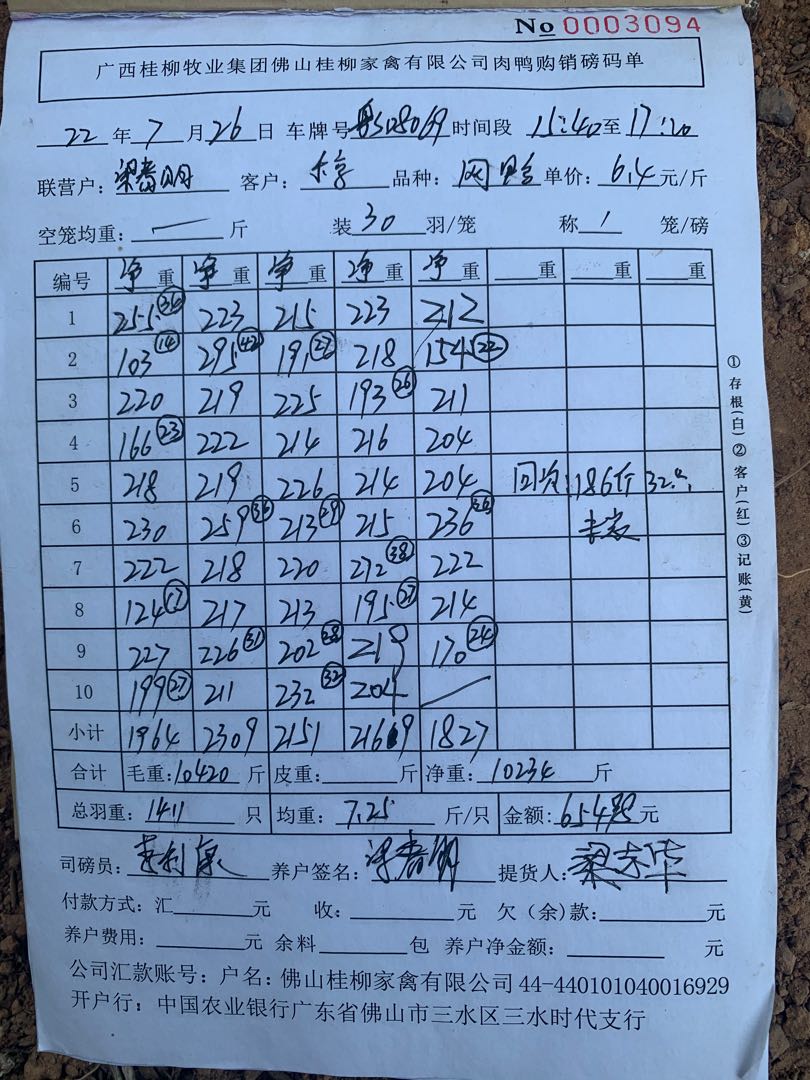 No 0003094
广西桂柳牧业集团佛山桂柳家禽有限公司肉鸭购销磅码单
22 年 7 月 26 日 车牌号 粤S08069 时间段 15:40 至 17:20
联营户: 梁春明 客户: 品种: 网 单价: 6.4 元/斤
空笼均重: — 斤 装 30 羽/笼 称 1 笼/磅
编号 净重 净重 净重 净重 净重 重 重 重
1 255 (36) 223 215 223 212
2 103 (14) 295 (42) 191 (27) 218 154.5 (22)
3 220 219 225 193 (26) 211
4 166 (23) 222 214 216 204
5 218 219 226 214 204 回资:186斤 32只
6 230 259 (36) 213 (29) 215 236 (36)
7 222 218 220 272 (38) 222
8 124 (17) 217 213 195 (27) 214
9 227 226 (31) 202 (28) 219 170 (24)
10 199 (27) 211 232 (32) 204 —
小计 1964 2309 2151 2169 1827
合计 毛重:10420 斤 皮重: 斤 净重: 10234 斤
总羽重: 1411 只 均重: 7.25 斤/只 金额: 65498 元
司磅员: 养户签名: 梁春明 提货人: 梁志华
付款方式:汇 元 收: 元 欠(余)款: 元
养户费用: 元 余料 包 养户净金额: 元
公司汇款账号:户名:佛山桂柳家禽有限公司 44-440101040016929
开户行:中国农业银行广东省佛山市三水区三水时代支行
①存根(白)②客户(红)③记账(黄)